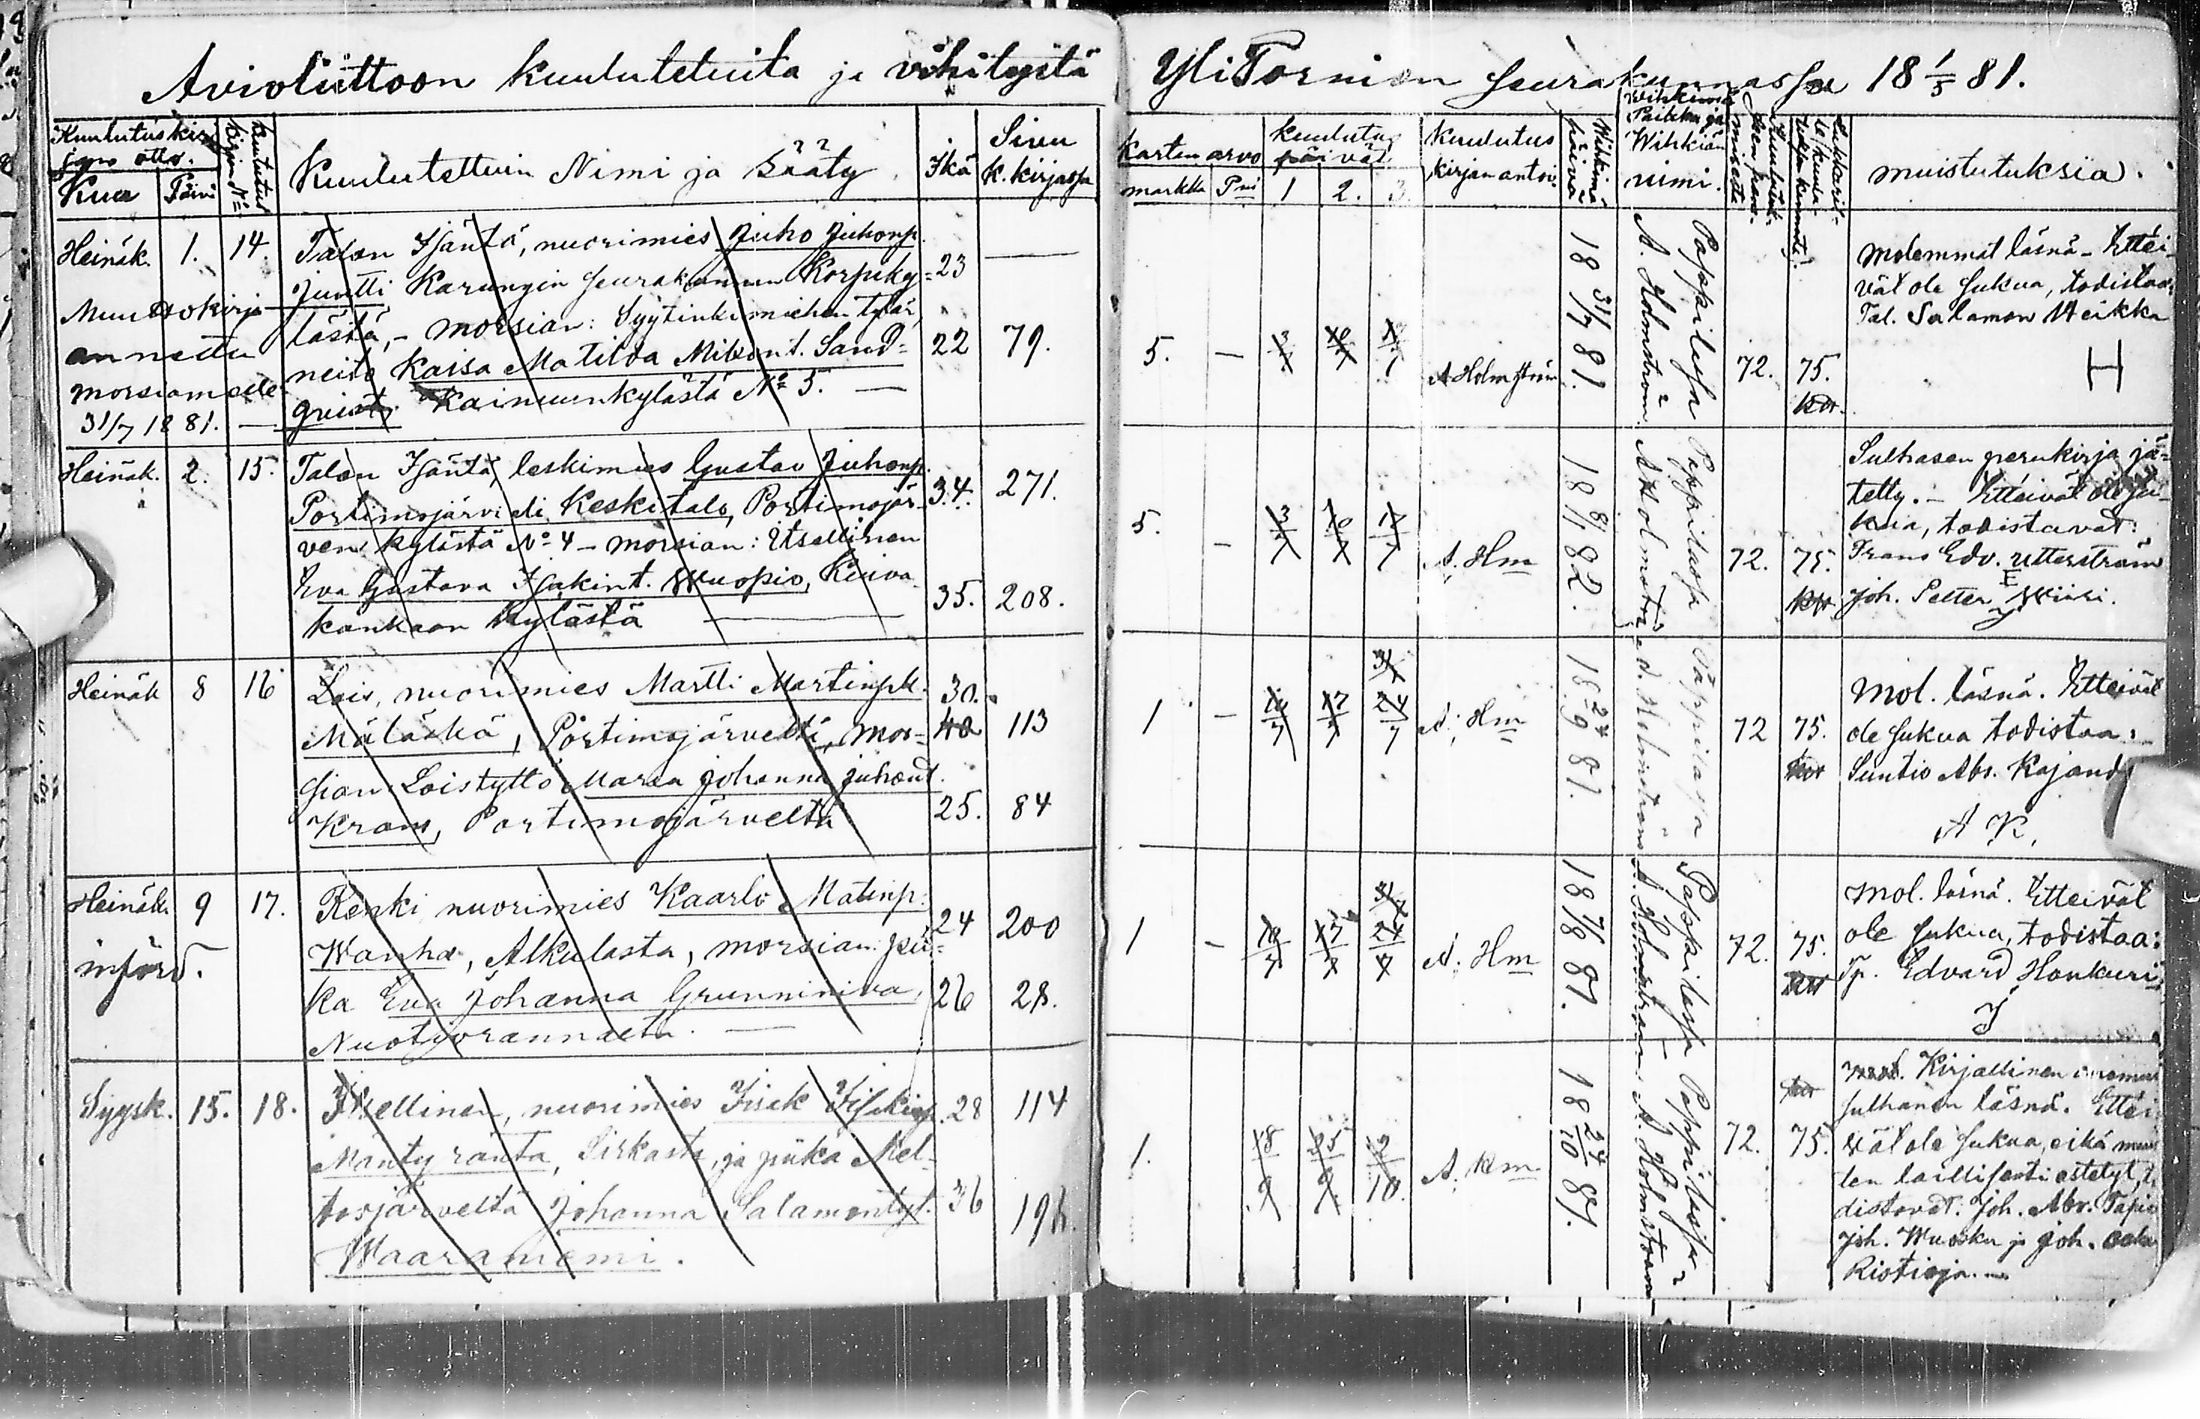 Avioliittoon kuulutetuita ja vihityitä
Kuulutuskir
jan otto.
Kuu Päivä
Kuulutus
kirjan No
Kuulutettuin Nimi ja Sääty.
Ikä
Sivu
k. kirjassa
Heinäk. 1. 14.
Muuttokirja
annettu
morsiamelle
31/7 1881.
Talon Isäntä, nuorimies Juho Juhonp.
Juntti Karungin seurakunnan Korpiky-
lästä, - morsian: Syytinkimiehen tytär,
neito Kaisa Matilda Mikont. Sand-
qvist, Kainuunkylästä No 5. —
23
22 79.
Heinäk. 2. 15.
Talon Isäntä, leskimies Gustav Juhonp.
Portimojärvi eli Keskitalo, Portimojär-
ven kylästä No 4 - morsian: Itsellinen
Eva Gustava Isakint. Wuopio, Kuiva
kankaan kylästä
34. 271.
35. 208.
Heinäk 8 16
Lois, nuorimies Martti Martinpk.
Määläskä, Portimojärveltä, mor-
sian Loistyttö Maria Johanna Juhont.
Kram, Portimojärveltä
30.
40 113
25. 84
Heinäk. 9 17.
införd.
Renki nuorimies Kaarlo Matinp.
Wanha, Alkulasta, morsian pii-
ka Eva Johanna Grunniniva,
Nuotiorannalta. —
24 200
26 28.
Syysk. 15. 18.
Itsellinen, nuorimies Isak Isakinp.
Mäntyranta, Sirkasta, ja piika Mel-
tosjärveltä Johanna Salamontyt.
Waaraniemi.
28 114
36 198.
YliTornion seurakunnassa 18 1/5 81.
kartan arvo
markka Pni
kuulutus
päivät
1 2. 3.
Kuulutus
kirjan antoi.
Wihkimä
päivä
Wihkimä
Paikka ja
Wihkiän
nimi.
muistutuksia.
5. —
A Holmström
18 31/7 81.
Pappilassa
A. Holmström
72. 75.
Molemmat läsnä - Ettei-
vät ole sukua, todistaa
Tal. Salamon Heikka
H
5. —
3/7 10/7 17/7
A. Hm
18 8/1 82.
Pappilassa
A Holmström
72. 75.
Sulhasen perukirja jä-
tetty. - Etteivät ole su-
kua, todistavat:
Frans Edv. Utterström
Joh. Petter
1 —
10/7 17/7 24/7
A. Hm
18 24/9 81.
Pappilassa
72 75.
Mol. läsnä. Etteivät
ole sukua todistaa:
Suntio Abr. Kajand
A K.
1 —
10/7 17/7 24/7
A. Hm
18 7/8 81.
Pappilassa
A. Holmström
72. 75.
Mol. läsnä. Etteivät
ole sukua, todistaa:
Tp. Edvard Honkuri
1.
18/9 25/9 2/10.
A. Hm
18 24/10 81.
Pappilassa
A. Holmström
72. 75.
Kirjallinen
sulhanen läsnä. Ettei
vät ole sukua, eikä
ten laillisesti estetyt,
distavat: Joh. Abr. Tapio
Joh. Wuosku ja Joh.